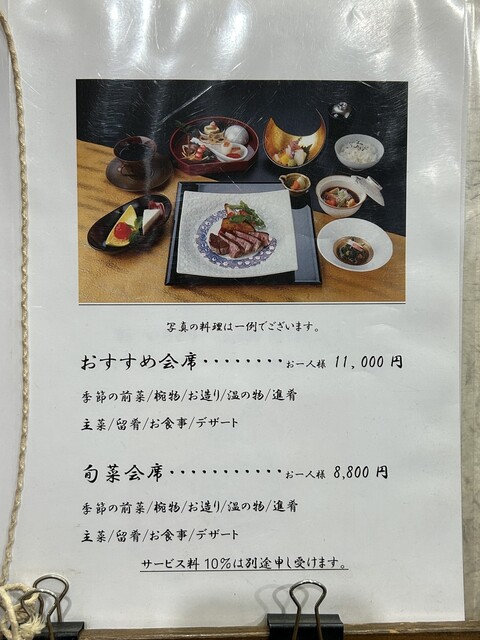 写真の料理は一例でございます。
おすすめ会席・・・・・・・・お一人様 11,000 円
季節の前菜/椀物/お造り/温の物/進肴
主菜/留肴/お食事/デザート
旬菜会席・・・・・・・・・・・お一人様 8,800 円
季節の前菜/椀物/お造り/温の物/進肴
主菜/留肴/お食事/デザート
サービス料 10%は別途申し受けます。